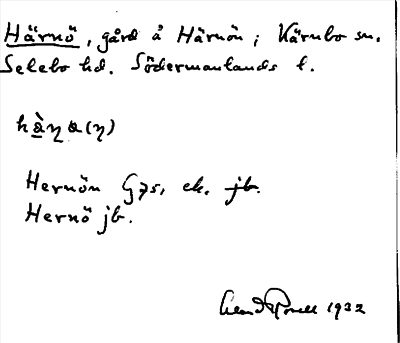 Härnö, gård å Härnön, Kärnbo sn.
Selebo hd. Södermanlands l.
Hernön G75, ek. jb.
Hernö jb.
1932